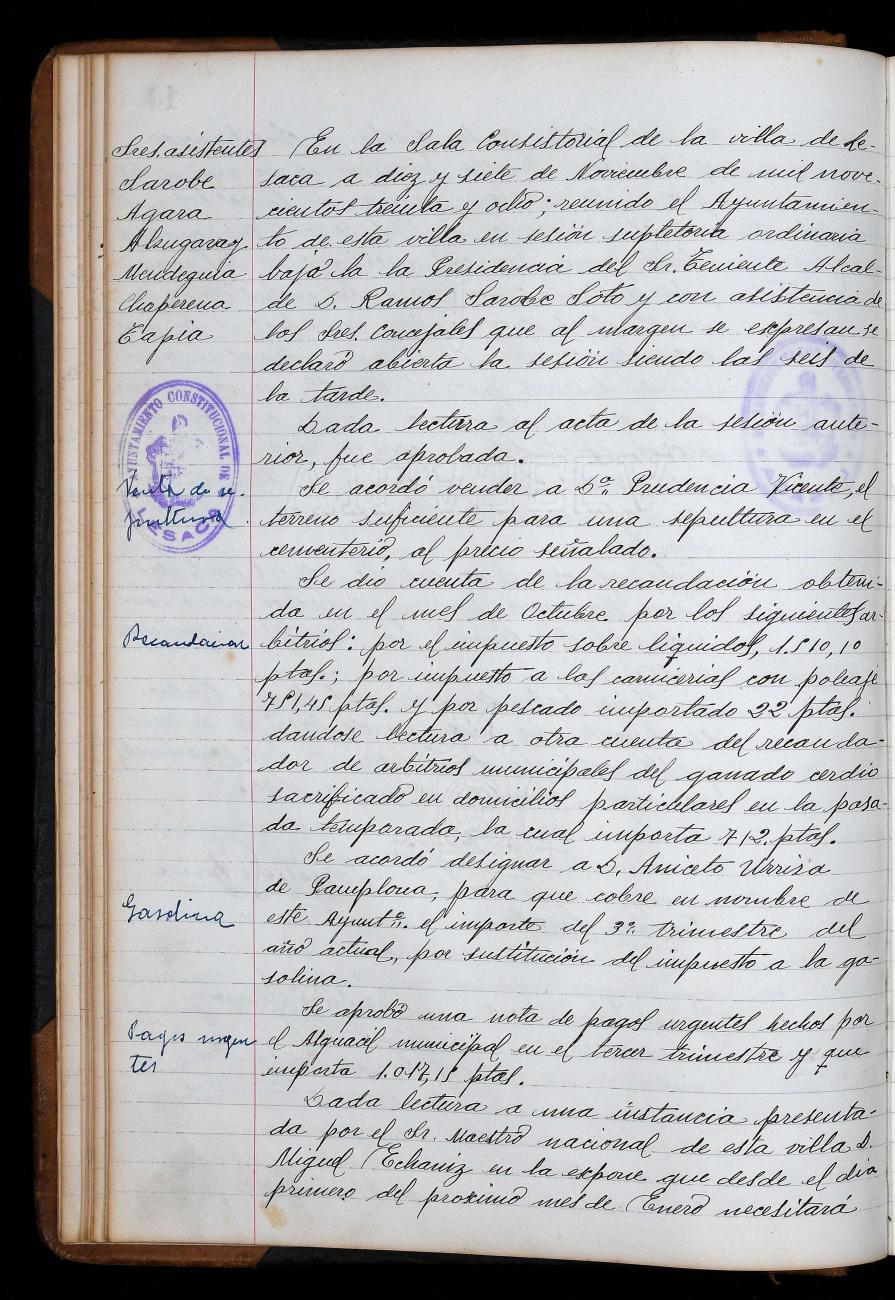 Sres. asistentes
Sarobe
Agara
Alzugaray
Mendeguia
Chaperena
Tapia
En la Sala Consistorial de la villa de Le-
saca a diez y siete de Noviembre de mil nove-
cientos treinta y ocho; reunido el Ayuntamien-
to de esta villa en sesión supletoria ordinaria
bajo la la Presidencia del Sr. Teniente Alcal-
de D. Ramos Sarobe Soto y con asistencia de
los Sres. Concejales que al margen se expresan se
declaró abierta la sesión siendo las seis de
la tarde.
Dada lectura al acta de la sesión ante-
rior, fue aprobada.
AYUNTAMIENTO CONSTITUCIONAL DE
LESACA
Venta de se-
pultura
Se acordó vender a Dª. Prudencia Vicente, el
terreno suficiente para una sepultura en el
cementerio, al precio señalado.
Recaudacion
Se dio cuenta de la recaudación obteni-
da en el mes de Octubre por los siguientes ar-
bitrios: por el impuesto sobre liquidos, 1.510,10
ptas.; por impuesto a las carnicerias con poleaje
751,45 ptas. y por pescado importado 22 ptas.
dandose lectura a otra cuenta del recauda-
dor de arbitrios municipales del ganado cerdio
sacrificado en domicilios particulares en la pasa-
da temporada, la cual importa 712. ptas.
Gasolina
Se acordó designar a D. Aniceto Urriza
de Pamplona, para que cobre en nombre de
este Ayuntº. el importe del 3º. trimestre del
año actual, por sustitución del impuesto a la ga-
solina.
Pagos urgen
tes
Se aprobó una nota de pagos urgentes hechos por
el Alguacil municipal en el tercer trimestre y que
importa 1.017,15 ptas.
Dada lectura a una instancia presenta-
da por el Sr. Maestro nacional de esta villa D.
Miguel Echaniz en la expone que desde el dia
primero del proximo mes de Enero necesitará